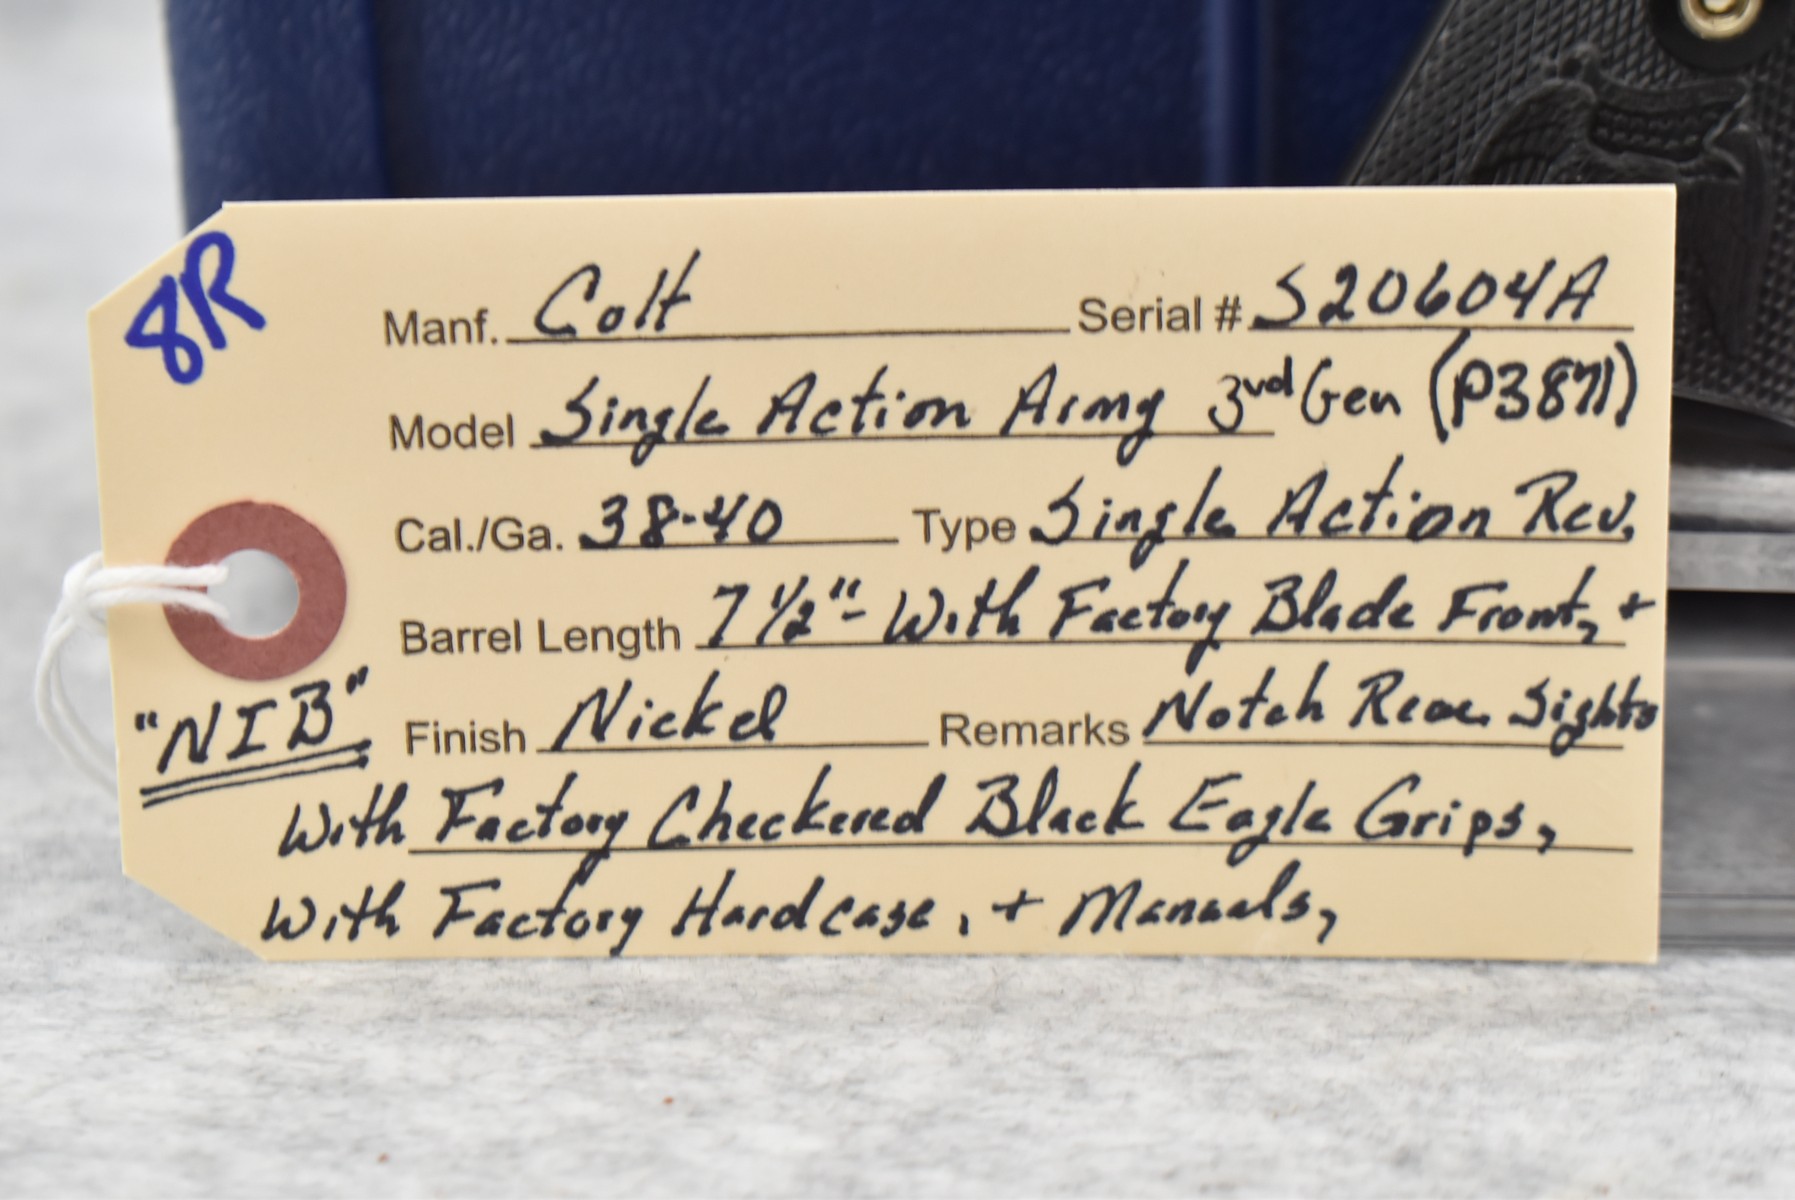 8R
Manf. Colt Serial # S20604A
Model Single Action Army 3rd Gen (P3871)
Cal./Ga. 38-40 Type Single Action Rev.
Barrel Length 7 1/2" - With Factory Blade Front, +
"NIB" Finish Nickel Remarks Notch Rear Sights
With Factory Checkered Black Eagle Grips,
With Factory Hardcase, + Manuals,